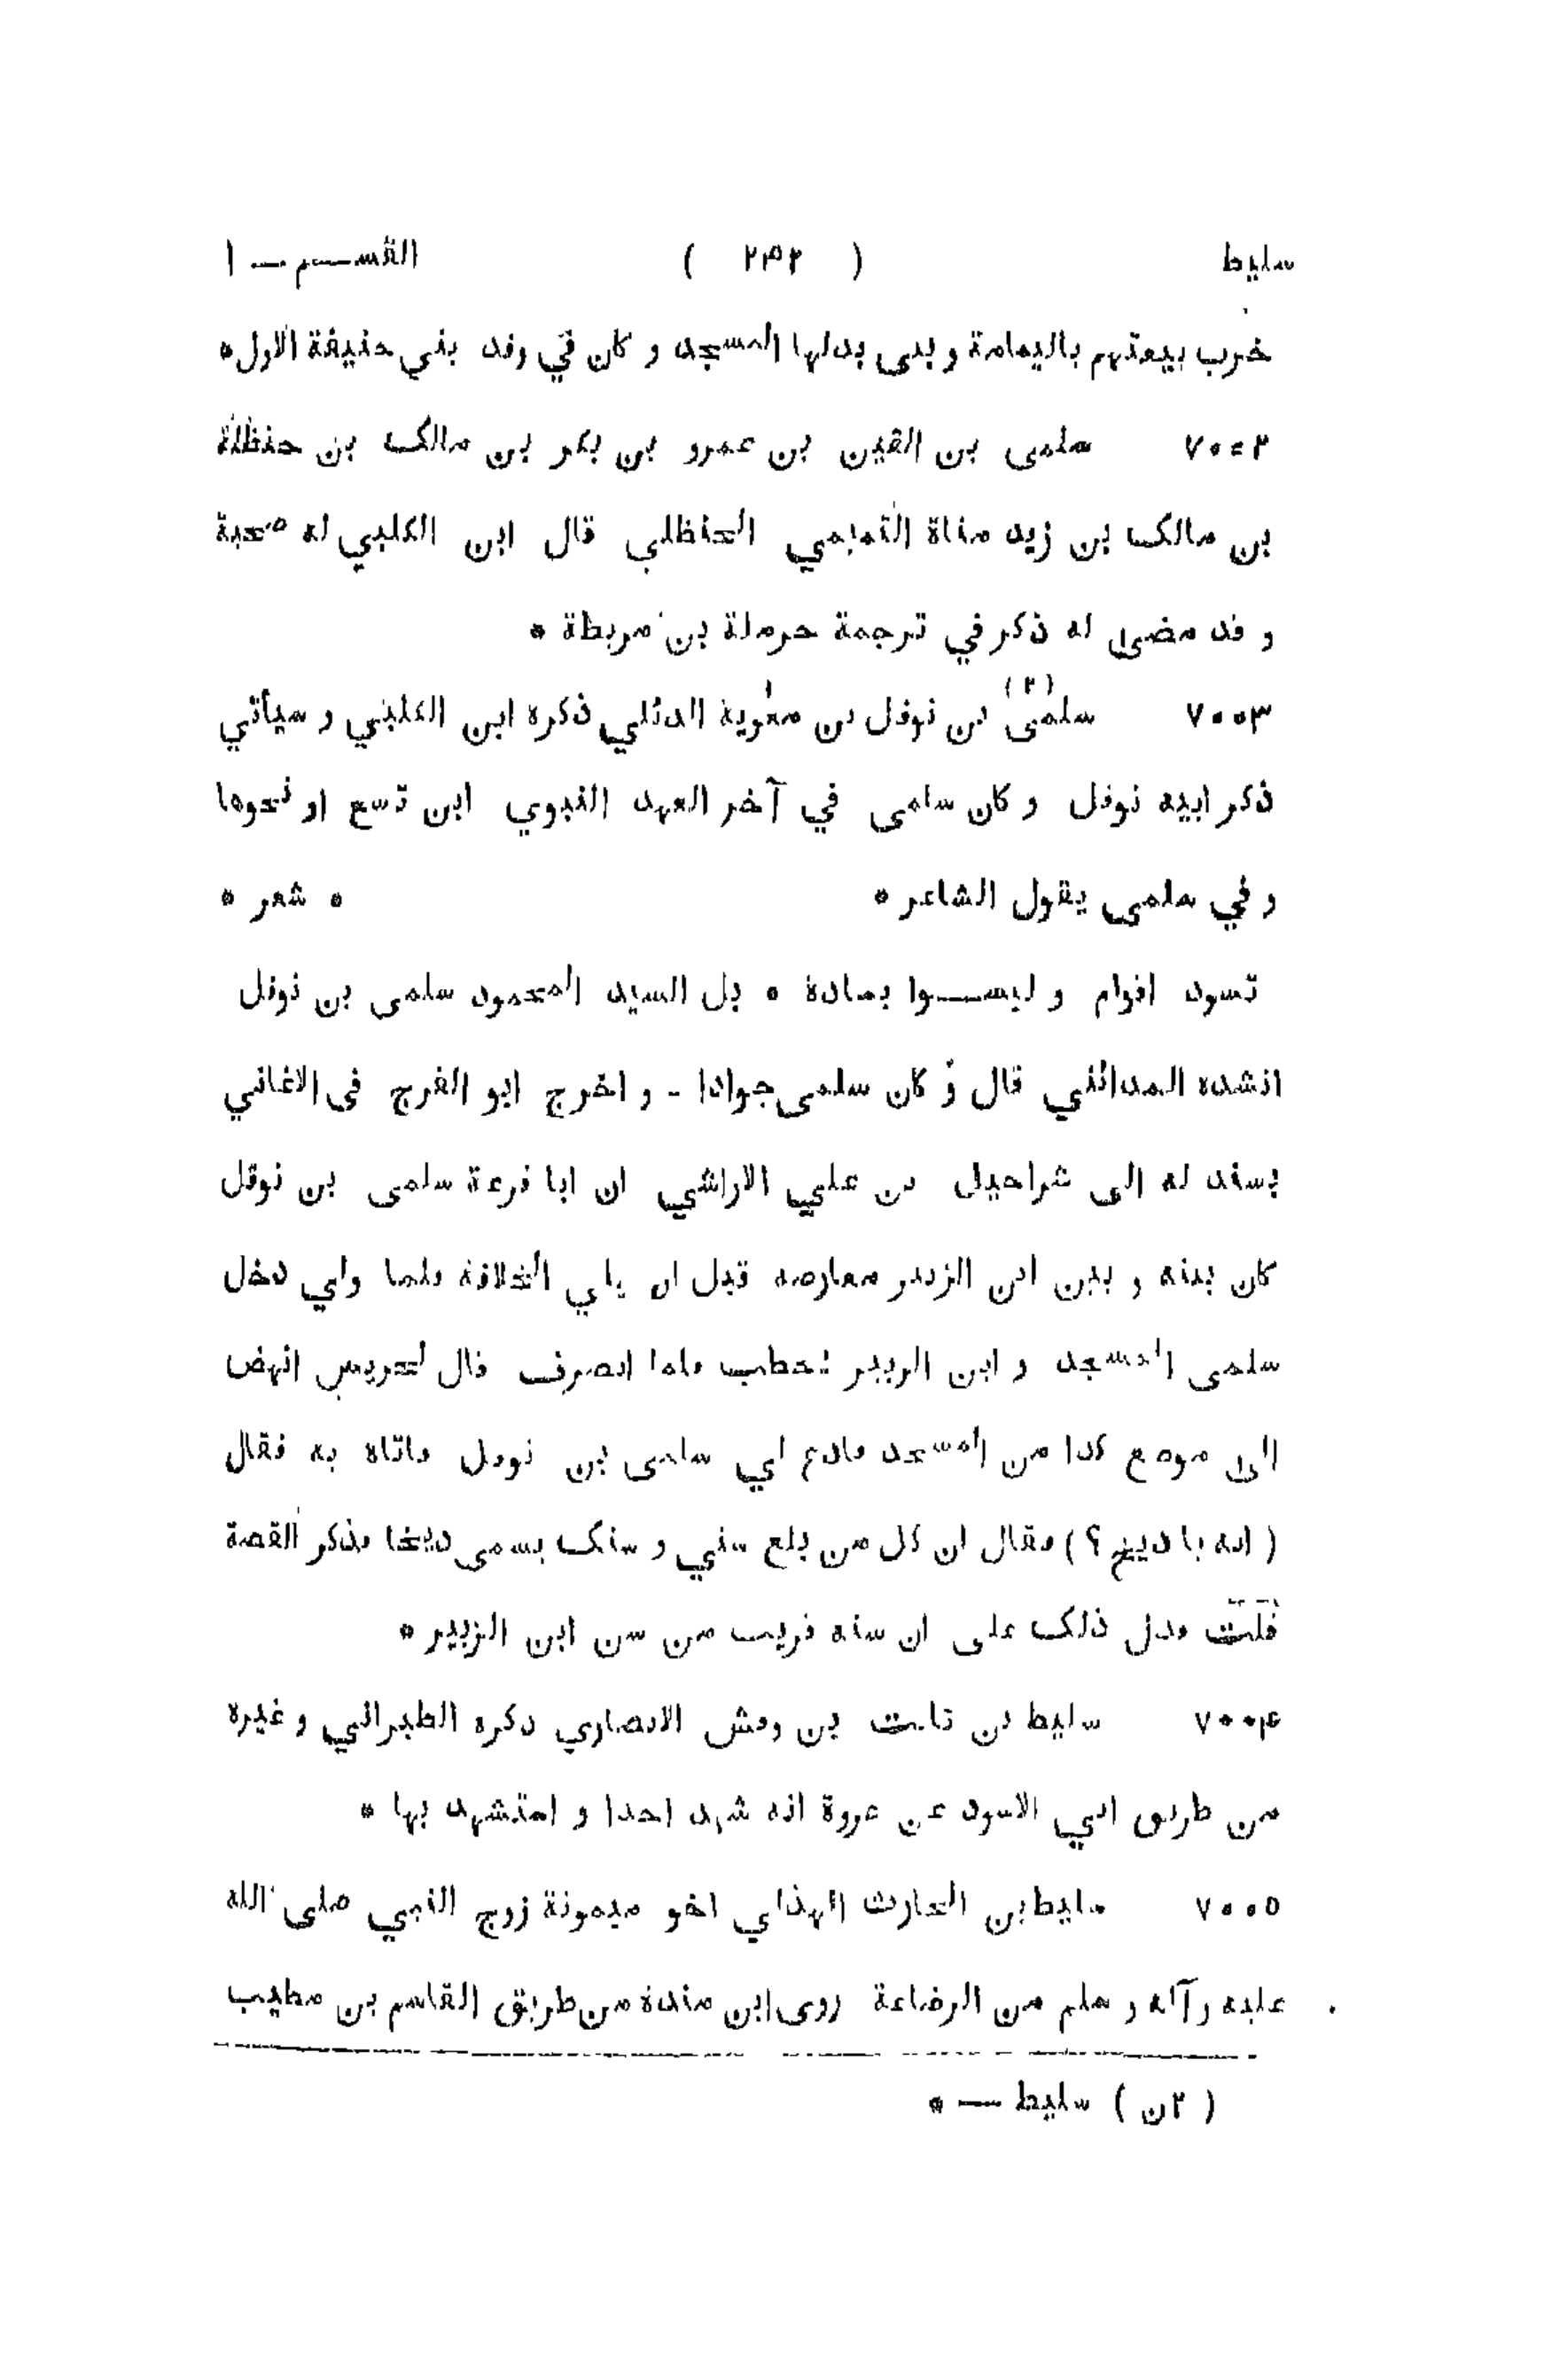 سليط ( ٢٣٢ ) القســـم — ١
خرب بيعتهم باليمامة و بنى بدلها المسجد و كان في وفد بني حنيفة الاول *
٧٠٠٢ سلمى بن القين بن عمرو بن بكر بن مالك بن حنظلة
بن مالك بن زيد مناة التميمي الحنظلي قال ابن الكلبي له صحبة
و قد مضى له ذكر في ترجمة حرملة بن مريطة *
٧٠٠٣ سلمى (٢) بن نوفل بن معوية الدئلي ذكره ابن الكلبي و سيأتي
ذكر ابيه نوفل و كان سلمى في آخر العهد النبوي ابن تسع او نحوها
و في سلمى يقول الشاعر * * شعر *
تسود اقوام و ليســـوا بسادة * بل السيد المحمود سلمى بن نوفل
انشده المدائني قال و كان سلمى جوادا - و اخرج ابو الفرج فى الاغاني
بسند له الى شراحيل بن علي الاراشي ان ابا قرعة سلمى بن نوفل
كان بينه و بين ابن الزبير معارضه قبل ان يلي الخلافة فلما ولي دخل
سلمى المسجد و ابن الزبير يخطب فلما انصرف قال لحريس انهض
الى موضع كذا من المسجد فادع لي سلمى بن نوفل فاتاه به فقال
( ايه يا ذبيح ؟ ) فقال ان كل من بلغ سني و سنك يسمى ذبيحا فذكر القصة
قلت فدل ذلك على ان سنه قريب من سن ابن الزبير *
٧٠٠۴ سليط بن ثابت بن وقش الانصاري ذكره الطبراني و غيره
من طريق ابي الاسود عن عروة انه شهد احدا و استشهد بها *
٧٠٠٥ سليط بن الحارث الهذلي اخو ميمونة زوج النبي صلى الله
عليه و آله و سلم من الرضاعة روى ابن مندة من طريق القاسم بن مطيب
( ٢ن ) سليط — *